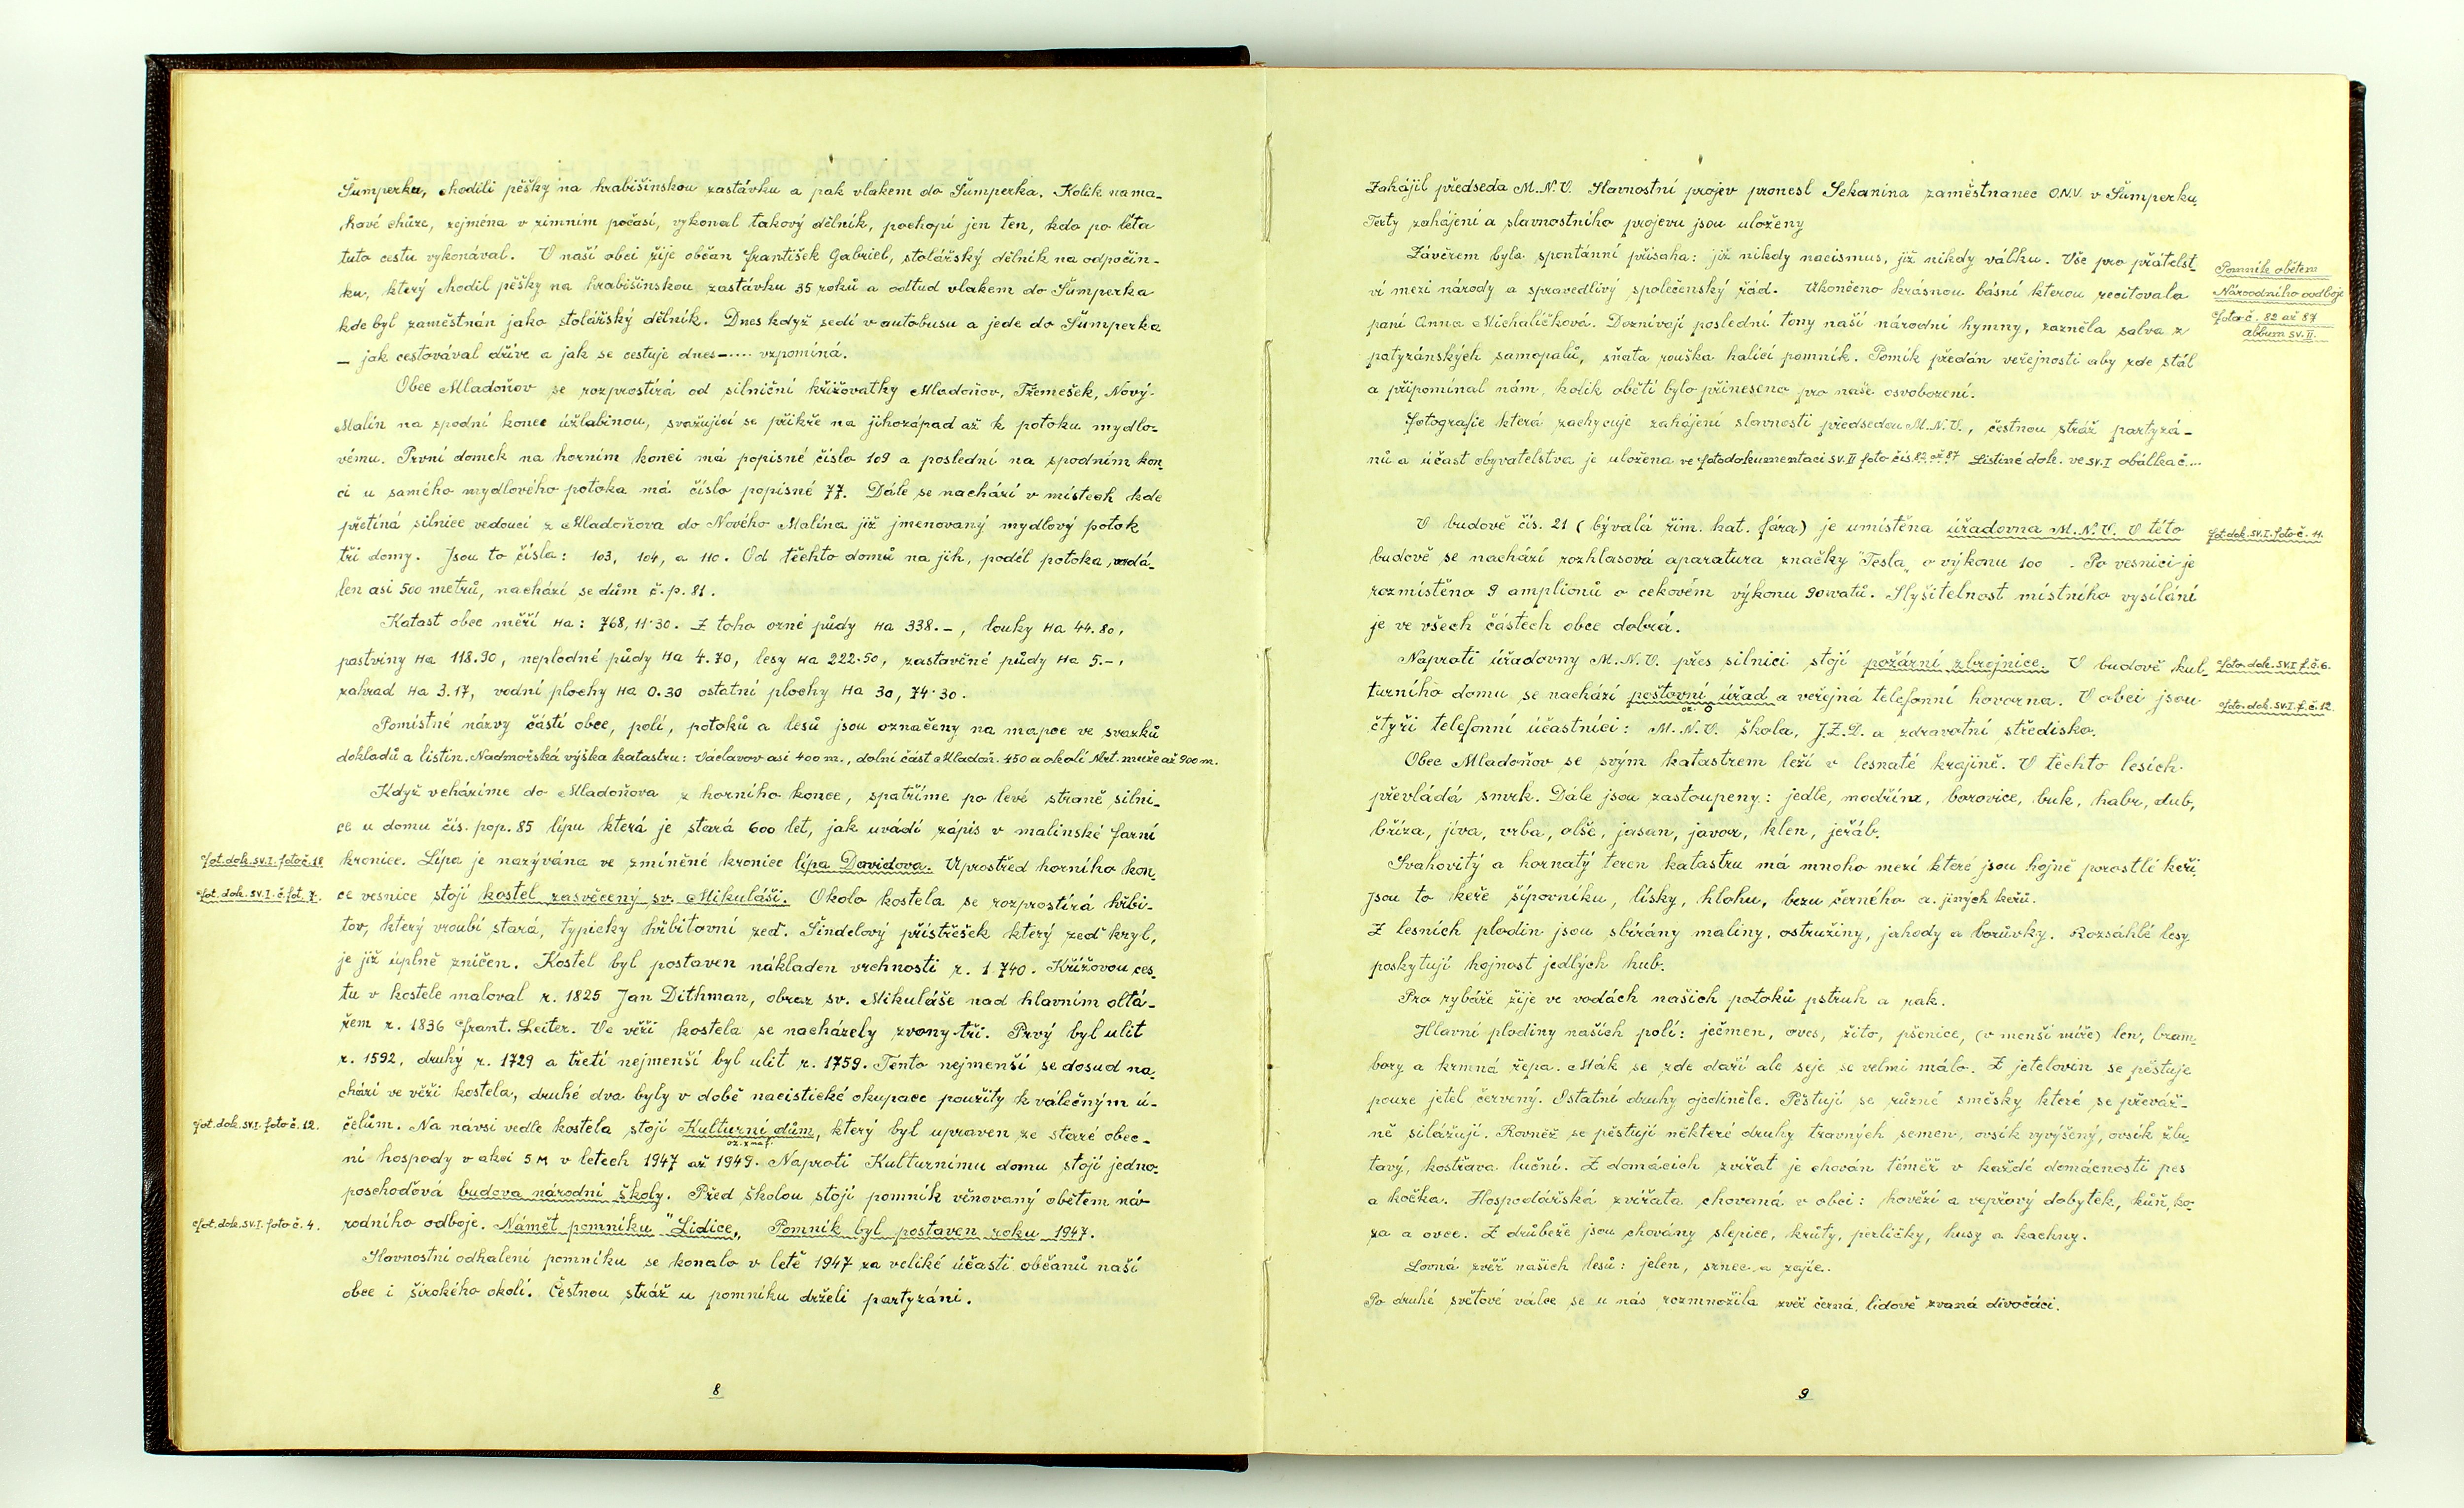 Šumperka, chodili pěšky na hrabišinskou zastávku a pak vlakem do Šumperka. Kolik nama-
havé chůze, zejména v zimním počasí, vykonal takový dělník, pochopí jen ten, kdo po léta
tuto cestu vykonával. V naší obci žije občan František Gabriel, stolářský dělník na odpočin-
ku, který chodil pěšky na hrabišinskou zastávku 35 roků a odtud vlakem do Šumperka
kde byl zaměstnán jako stolářský dělník. Dnes když sedí v autobusu a jede do Šumperka
- jak cestovával dříve a jak se cestuje dnes-.... vzpomíná.
Obec Mladoňov se rozprostírá od silniční křižovatky Mladoňov, Třemešek, Nový-
Malín na spodní konec úžlabinou, svažující se příkře na jihozápad až k potoku mydlo-
vému. První domek na horním konci má popisné číslo 109 a poslední na spodním kon-
ci u samého mydlového potoka má číslo popisné 77. Dále se nachází v místech kde
přetíná silnice vedoucí z Mladoňova do Nového Malína již jmenovaný mydlový potok
tři domy. Jsou to čísla: 103, 104, a 110. Od těchto domů na jih, podél potoka, vzdá-
len asi 500 metrů, nachází se dům č.p. 81.
Katast obce měří Ha: 768,11·30. Z toho orné půdy Ha 338.-, louky Ha 44.80,
pastviny Ha 118.90, neplodné půdy Ha 4.70, lesy Ha 222·50, zastavěné půdy Ha 5.-,
zahrad Ha 3.17, vodní plochy Ha 0.30 ostatní plochy Ha 30,74·30.
Pomístné názvy částí obce, polí, potoků a lesů jsou označeny na mapce ve svazků
dokladů a listin. Nadmořská výška katastru: Václavov asi 400 m., dolní část Mladoň. 450 a okolí Mrt. muže až 900 m.
Když vcházíme do Mladoňova z horního konce, spatříme po levé straně silni-
ce u domu čís. pop. 85 lípu která je stará 600 let, jak uvádí zápis v malinské farní
fot. dok. sv. I. foto č. 18 kronice. Lípa je nazývána ve zmíněné kronice lípa Davidova. Uprostřed horního kon-
fot. dok. sv. I. č. fot. 7. ce vesnice stojí kostel zasvěcený sv. Mikuláši. Okolo kostela se rozprostírá hřbi-
tov, který vroubí stará, typicky hřbitovní zeď. Šindelový přístřešek který zeď kryl,
je již úplně zničen. Kostel byl postaven nákladen vrchnosti r. 1740. Křížovou ces-
tu v kostele maloval r. 1825 Jan Dithman, obraz sv. Mikuláše nad hlavním oltá-
řem r. 1836 Frant. Leiter. Ve věži kostela se nacházely zvony tři. Prvý byl ulit
r. 1592, druhý r. 1729 a třetí nejmenší byl ulit r. 1759. Tento nejmenší se dosud na-
chází ve věži kostela, druhé dva byly v době nacistické okupace použity k válečným ú-
fot. dok. sv. I. foto č. 12. čelům. Na návsi vedle kostela stojí Kulturní dům, který byl upraven ze staré obec-
ní hospody v akci 5M v letech 1947 až 1949. Naproti Kulturnímu domu stojí jedno-
poschoďová budova národní školy. Před školou stojí pomník věnovaný obětem ná-
fot. dok. sv. I. foto č. 4. rodního odboje. Námět pomníku "Lidice„ Pomník byl postaven roku 1947.
Slavnostní odhalení pomníku se konalo v létě 1947 za veliké účasti občanů naší
obce i širokého okolí. Čestnou stráž u pomníku drželi partyzáni.
8
Zahájil předseda M.N.V. Slavnostní projev pronesl Sekanina zaměstnanec O.N.V. v Šumperku.
Texty zahájení a slavnostního projevu jsou uloženy
Závěrem byla spontánní přísaha: již nikdy nacismus, již nikdy válku. Vše pro přátelst-
ví mezi národy a spravedlivý společenský řád. Ukončeno krásnou básní kterou recitovala
paní Anna Michalíčková. Doznívají poslední tony naší národní hymny, zazněla salva z
patyzánských samopalů, sňata rouška halící pomník. Pomík předán veřejnosti aby zde stál
a připomínal nám, kolik obětí bylo přineseno pro naše osvobození.
Pomník obětem
Národního odboje
foto č. 82 až 87
album sv. II.
Fotografie která zachycuje zahájení slavnosti předsedou M.N.V., čestnou stráž partyzá-
nů a účast obyvatelstva je uložena ve fotodokumentaci sv. II foto čís. 82 až 87 Listiné dok. ve sv. I obálka č....
V budově čís. 21 (bývalá řím. kat. fára) je umístěna úřadovna M.N.V. V této fot. dok. sv. I. foto č. 11.
budově se nachází rozhlasová aparatura značky "Tesla„ o výkonu 100 . Po vesnici je
rozmístěno 9 amplionů o cekovém výkonu 90 watů. Slyšitelnost místního vysílání
je ve všech částech obce dobrá.
Naproti úřadovny M.N.V. přes silnici stojí požární zbrojnice. V budově kul- foto. dok. sv. I f. č. 6.
turního domu se nachází poštovní úřad a veřejná telefonní hovorna. V obci jsou foto. dok. sv. I. f. č. 12.
čtyři telefonní účastníci: M.N.V. škola, J.Z.D. a zdravotní středisko.
Obec Mladoňov se svým katastrem leží v lesnaté krajině. V těchto lesích
převládá smrk. Dále jsou zastoupeny: jedle, modřín, borovice, buk, habr, dub,
bříza, jíva, vrba, olše, jasan, javor, klen, jeřáb.
Svahovitý a hornatý teren katastru má mnoho mezí které jsou hojně porostlé keři,
Jsou to keře šípovníku, lísky, hlohu, bezu černého a. jiných keřů.
Z lesních plodin jsou sbírány maliny, ostružiny, jahody a borůvky. Rozsáhlé lesy
poskytují hojnost jedlých hub.
Pro rybáře žije ve vodách našich potoků pstruh a rak.
Hlavní plodiny našich polí: ječmen, oves, žito, pšenice, (v menší míře) len, bram-
bory a krmná řepa. Mák se zde daří ale seje se velmi málo. Z jetelovin se pěstuje
pouze jetel červený. Ostatní druhy ojediněle. Pěstují se různé směsky které se převáž-
ně silážují. Rovněž se pěstují některé druhy travných semen, ovsík vyvýšený, ovsík žlu-
tavý, kostřava luční. Z domácích zvířat je chován téměř v každé domácnosti pes
a kočka. Hospodářská zvířata chovaná v obci: hovězí a vepřový dobytek, kůň, ko-
za a ovce. Z drůbeže jsou chovány slepice, krůty, perličky, husy a kachny.
Lovná zvěř našich lesů: jelen, srnec a zajíc.
Po druhé světové válce se u nás rozmnožila zvěř černá, lidově zvaná divočáci.
9